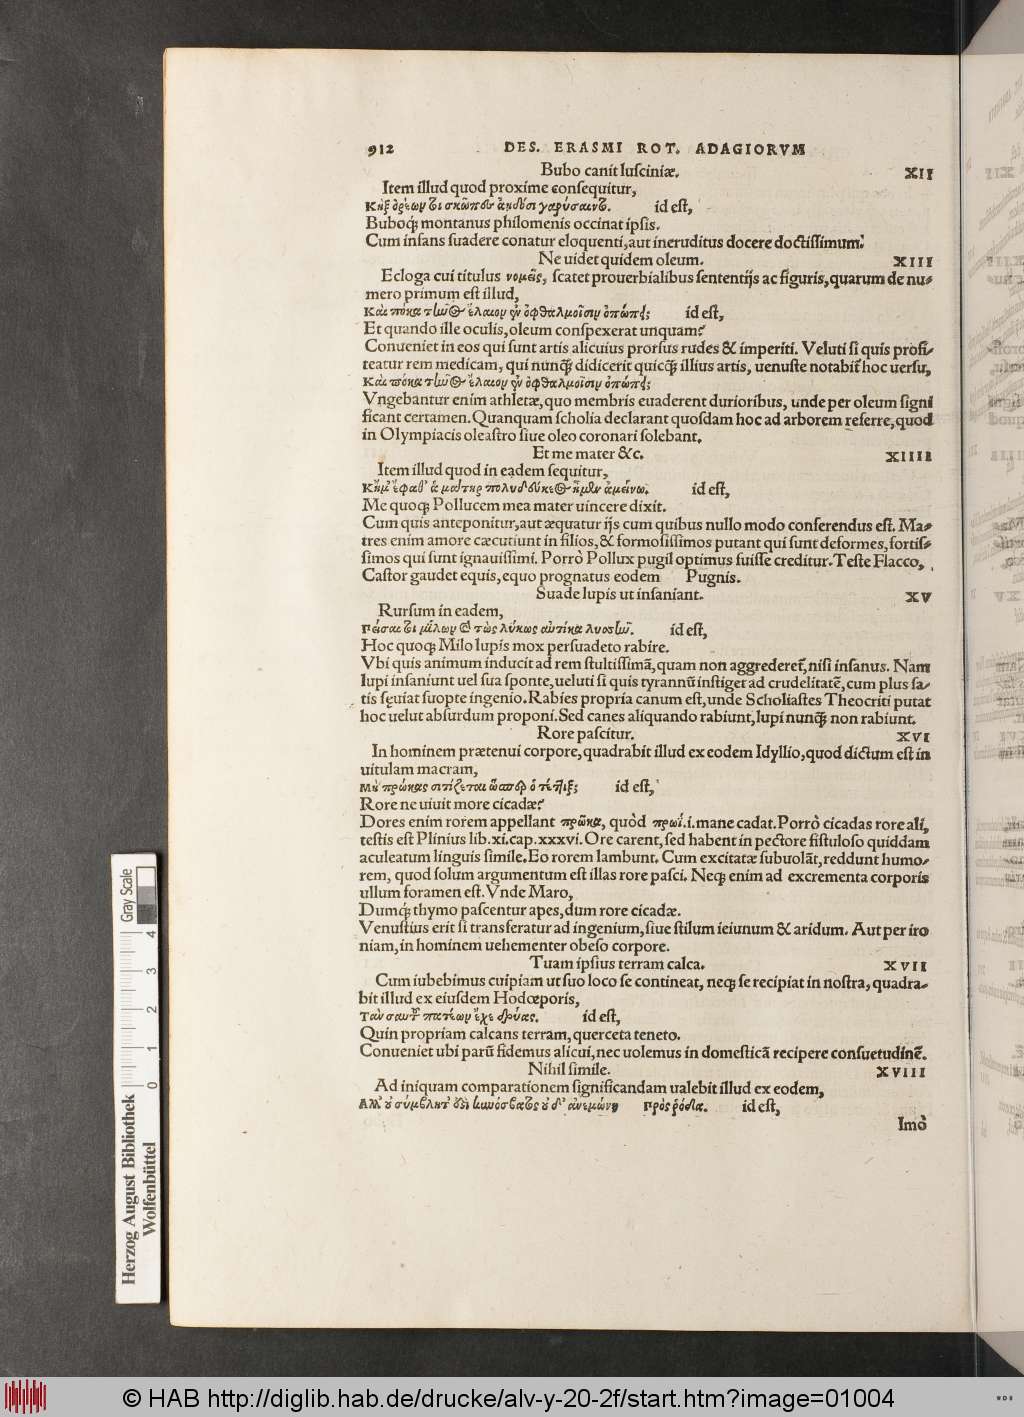 912 DES. ERASMI ROT. ADAGIORVM
Bubo canit lusciniæ. XII
Item illud quod proxime consequitur,
Κηξ ὀρέων τοι σκῶπες ἀηδόσι γαρύσαιντο. id est,
Buboq́; montanus philomenis occinat ipsis.
Cum infans suadere conatur eloquenti, aut ineruditus docere doctissimum.
Ne uidet quidem oleum. XIII
Ecloga cui titulus νομεῖς, scatet prouerbialibus sententijs ac figuris, quarum de nu-
mero primum est illud,
Καὶ πόκα τῆνος ἔλαιον ἐν ὀφθαλμοῖσιν ὀπώπει; id est,
Et quando ille oculis, oleum conspexerat unquam?
Conueniet in eos qui sunt artis alicuius prorsus rudes & imperiti. Veluti si quis profi-
teatur rem medicam, qui nunq̃ didicerit quicq̃ illius artis, uenuste notabit̃ hoc uersu,
Καὶ πόκα τῆνος ἔλαιον ἐν ὀφθαλμοῖσιν ὀπώπει;
Vngebantur enim athletæ, quo membris euaderent durioribus, unde per oleum signi
ficant certamen. Quanquam scholia declarant quosdam hoc ad arborem referre, quod
in Olympiacis oleastro siue oleo coronari solebant.
Et me mater &c. XIIII
Item illud quod in eadem sequitur,
Κἤμ' ἔφαθ' ἁ μάτηρ πολυδεύκεος ἦμεν ἀμείνω. id est,
Me quoq; Pollucem mea mater uincere dixit.
Cum quis anteponitur, aut æquatur ijs cum quibus nullo modo conferendus est. Ma-
tres enim amore cæcutiunt in filios, & formosissimos putant qui sunt deformes, fortis-
simos qui sunt ignauissimi. Porrò Pollux pugil optimus fuisse creditur. Teste Flacco,
Castor gaudet equis, equo prognatus eodem Pugnis.
Suade lupis ut insaniant. XV
Rursum in eadem,
Πείσαι τοι μίλων καὶ τὼς λύκως αὐτίκα λυσσῆν. id est,
Hoc quoq; Milo lupis mox persuadeto rabire.
Vbi quis animum inducit ad rem stultissimã, quam non aggrederet̃, nisi insanus. Nam
lupi insaniunt uel sua sponte, ueluti si quis tyrannũ instiget ad crudelitatẽ, cum plus sa-
tis sęuiat suopte ingenio. Rabies propria canum est, unde Scholiastes Theocriti putat
hoc uelut absurdum proponi. Sed canes aliquando rabiunt, lupi nunq̃ non rabiunt.
Rore pascitur. XVI
In hominem prætenui corpore, quadrabit illud ex eodem Idyllio, quod dictum est in
uitulam macram,
Μὴ πρῶκας σιτίζεται ὥσπερ ὁ τέττιξ; id est,
Rore ne uiuit more cicadæ?
Dores enim rorem appellant πρῶκα, quòd πρωΐ. i. mane cadat. Porrò cicadas rore ali,
testis est Plinius lib. xi. cap. xxxvi. Ore carent, sed habent in pectore fistuloso quiddam
aculeatum linguis simile. Eo rorem lambunt. Cum excitatæ subuolãt, reddunt humo-
rem, quod solum argumentum est illas rore pasci. Neq; enim ad excrementa corporis
ullum foramen est. Vnde Maro,
Dumq́; thymo pascentur apes, dum rore cicadæ.
Venustius erit si transferatur ad ingenium, siue stilum ieiunum & aridum. Aut per iro
niam, in hominem uehementer obeso corpore.
Tuam ipsius terram calca. XVII
Cum iubebimus cuipiam ut suo loco se contineat, neq; se recipiat in nostra, quadra-
bit illud ex eiusdem Hodœporis,
Τὰν σαυτοῦ πατέων ἔχε δρύας. id est,
Quin propriam calcans terram, querceta teneto.
Conueniet ubi parũ fidemus alicui, nec uolemus in domesticã recipere consuetudinẽ.
Nihil simile. XVIII
Ad iniquam comparationem significandam ualebit illud ex eodem,
Ἀλλ' οὐ σύμβλητ' ἐστὶ κυνόσβατος οὐδ' ἀνεμώνη Πρὸς ῥόδα. id est,
Imò
Gray Scale
0 1 2 3 4
Herzog August Bibliothek
Wolfenbüttel
© HAB http://diglib.hab.de/drucke/alv-y-20-2f/start.htm?image=01004